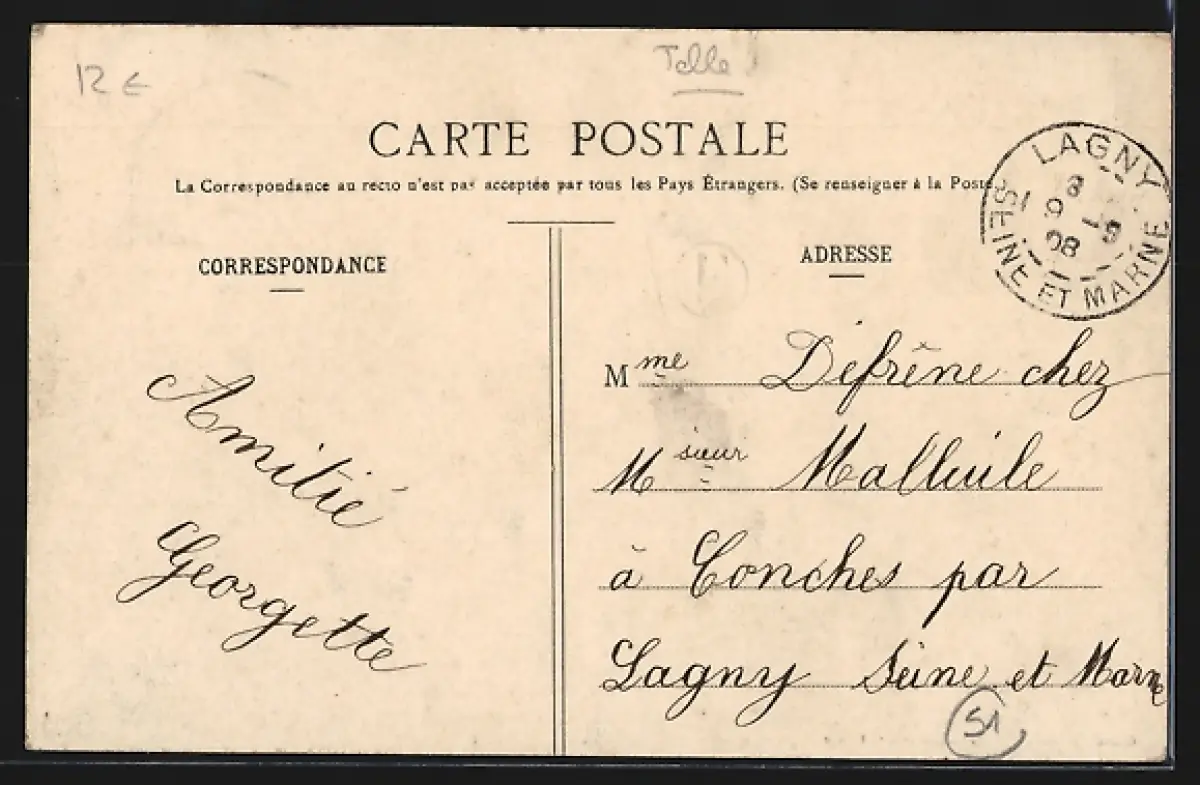 12 €
CARTE POSTALE
La Correspondance au recto n'est pas acceptée par tous les Pays Étrangers. (Se renseigner à la Poste)
CORRESPONDANCE
ADRESSE
LAGNY
SEINE ET MARNE
8
9 -9
08
Amitié
Georgette
Mme Défrêne chez
Msieur
à Conches par
Lagny Seine et Marne
51